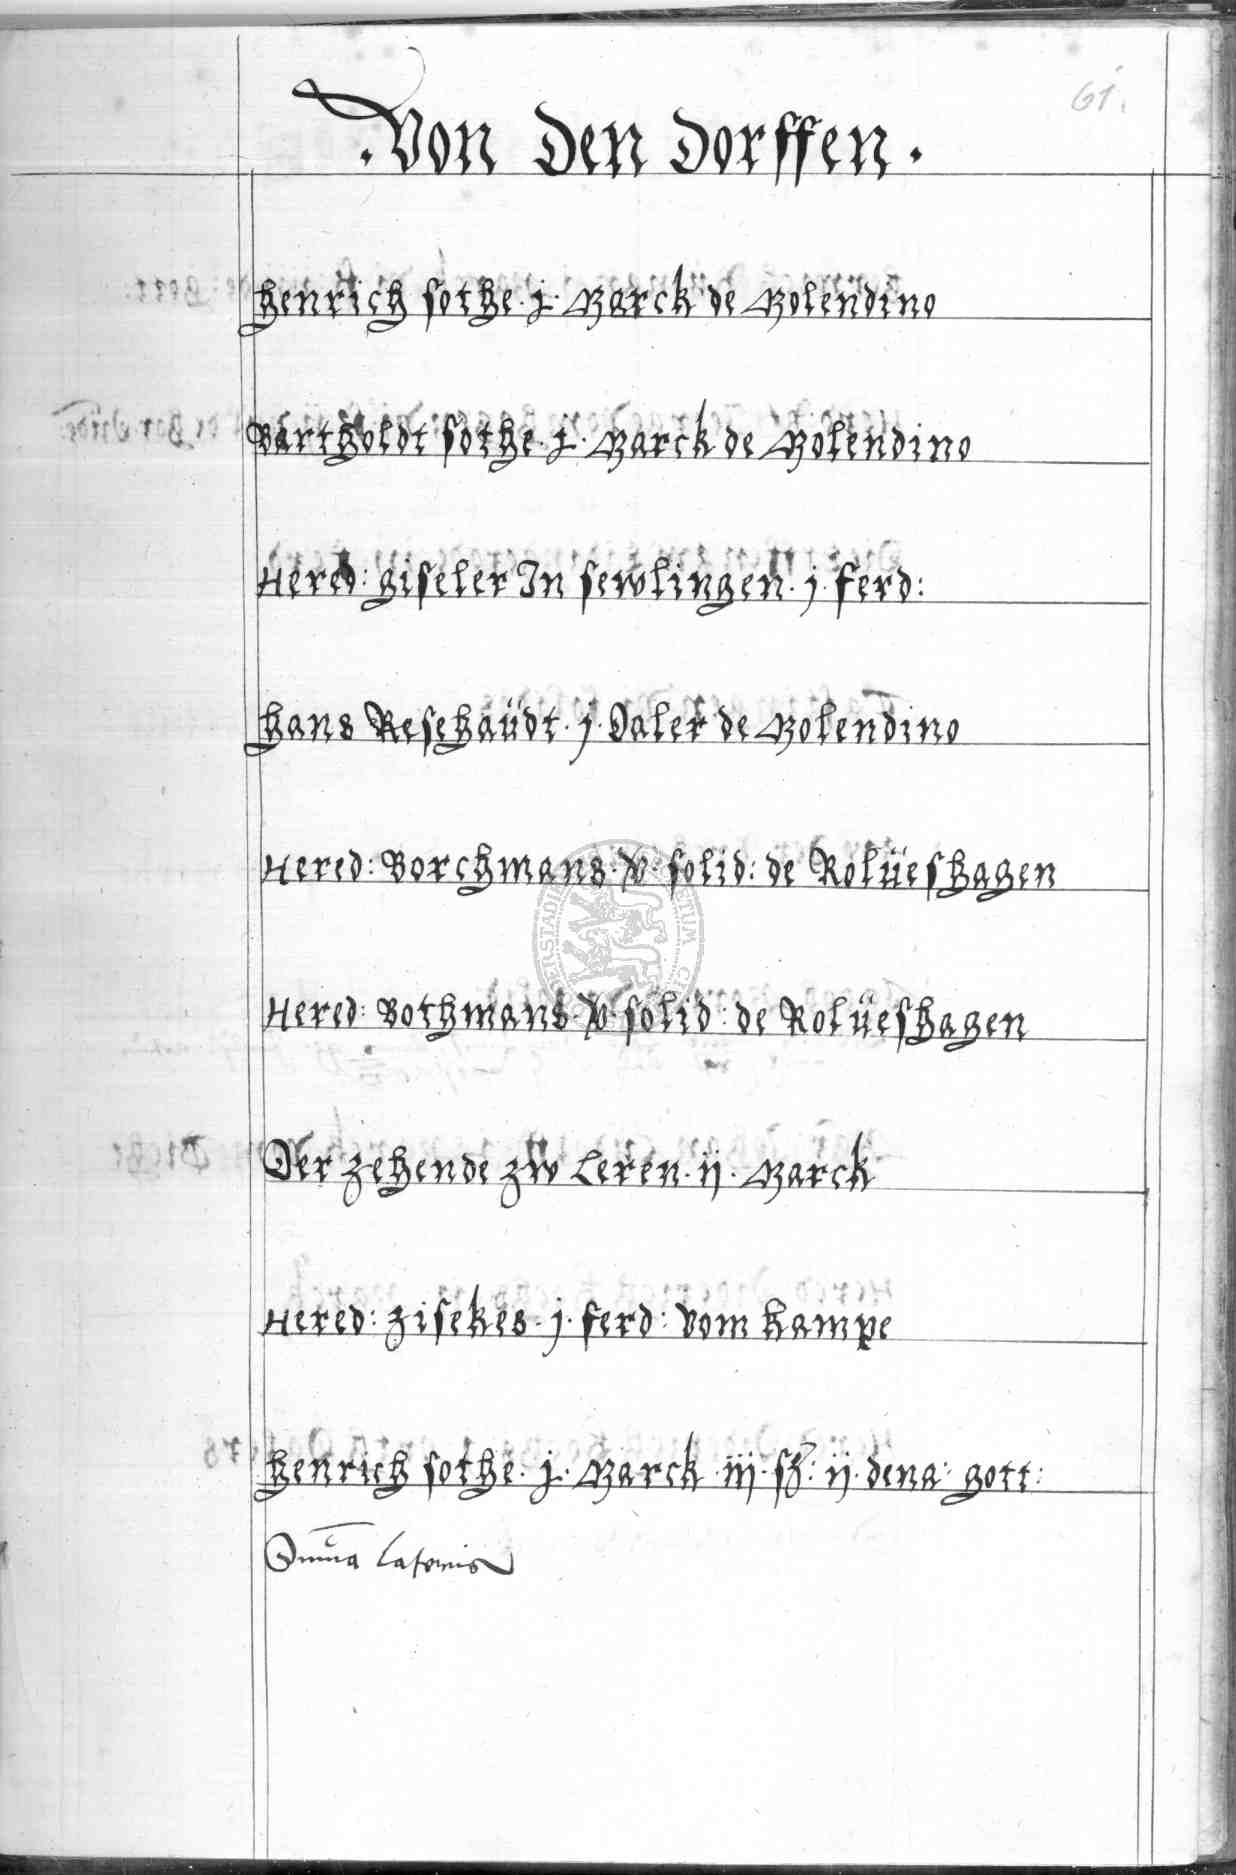 61.
. Von Den Dorffen .
Henrich Sothe . j . Marck de Molendino
Bartholdt Sothe . j . Marck de Molendino
Hered: giseler In sewlingen . j . ferd:
Hans Resehaüdt . j . Daler de Molendino
Hered: Borchmans . v . solid: de Rolüeshagen
Hered: Bothmans . v . solid: de Rolüeshagen
Der zehende zw Leren . ij . Marck
Hered: Zisekes . j . ferd: vom kampe
Henrich Sothe . j . Marck . iij . sß: ij . dena: gott:
Suma Lateris